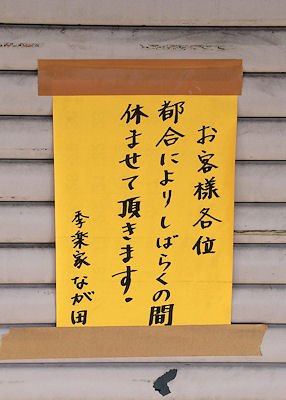 お客様各位
都合によりしばらくの間
休ませて頂きます。
季楽家 なが田